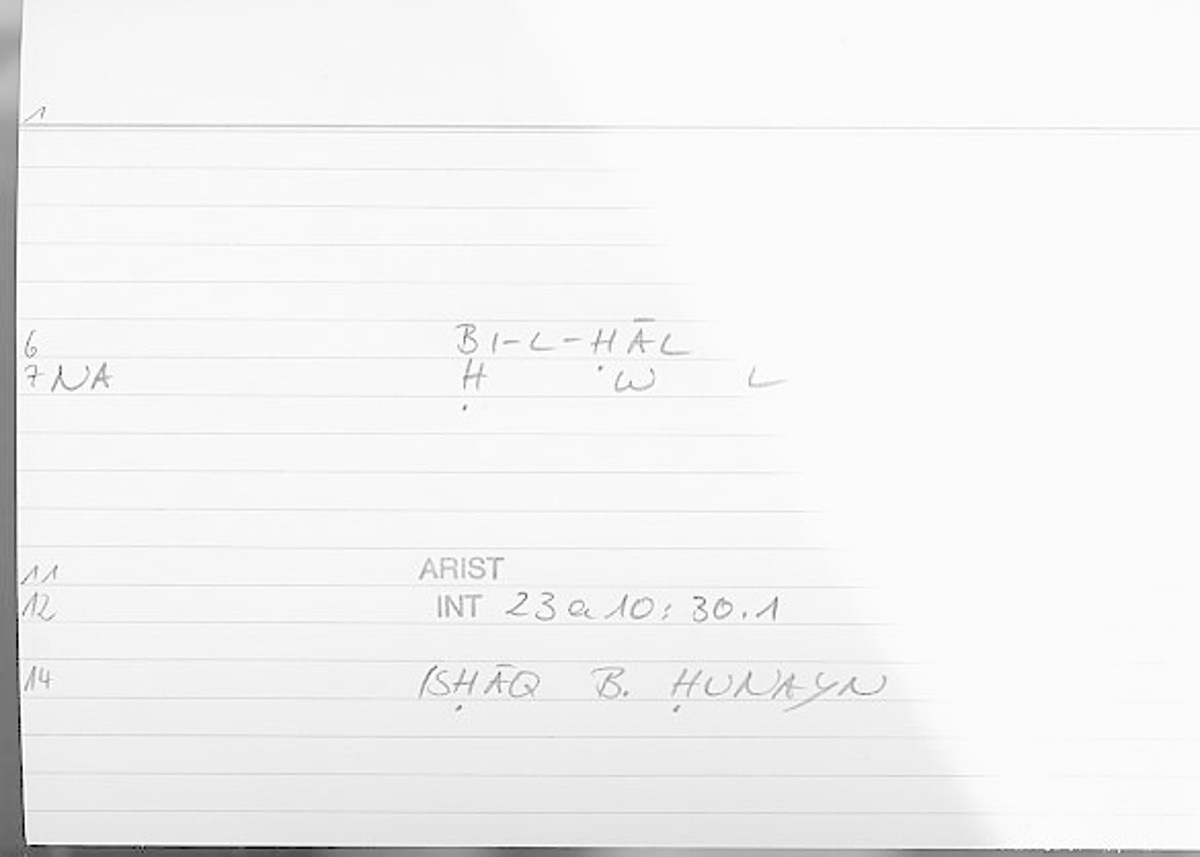 1
6 BI-L-ḤĀL
7 NA Ḥ W L
11 ARIST
12 INT 23a10:30.1
14 ISḤĀQ B. ḤUNAYN